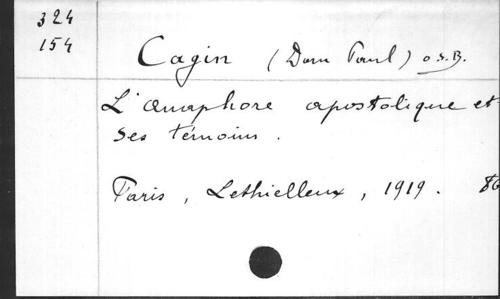 324
154
Cagin (Dom Paul) O.S.B.
L'anaphore apostolique et
ses témoins.
Paris, Lethielleux, 1919.